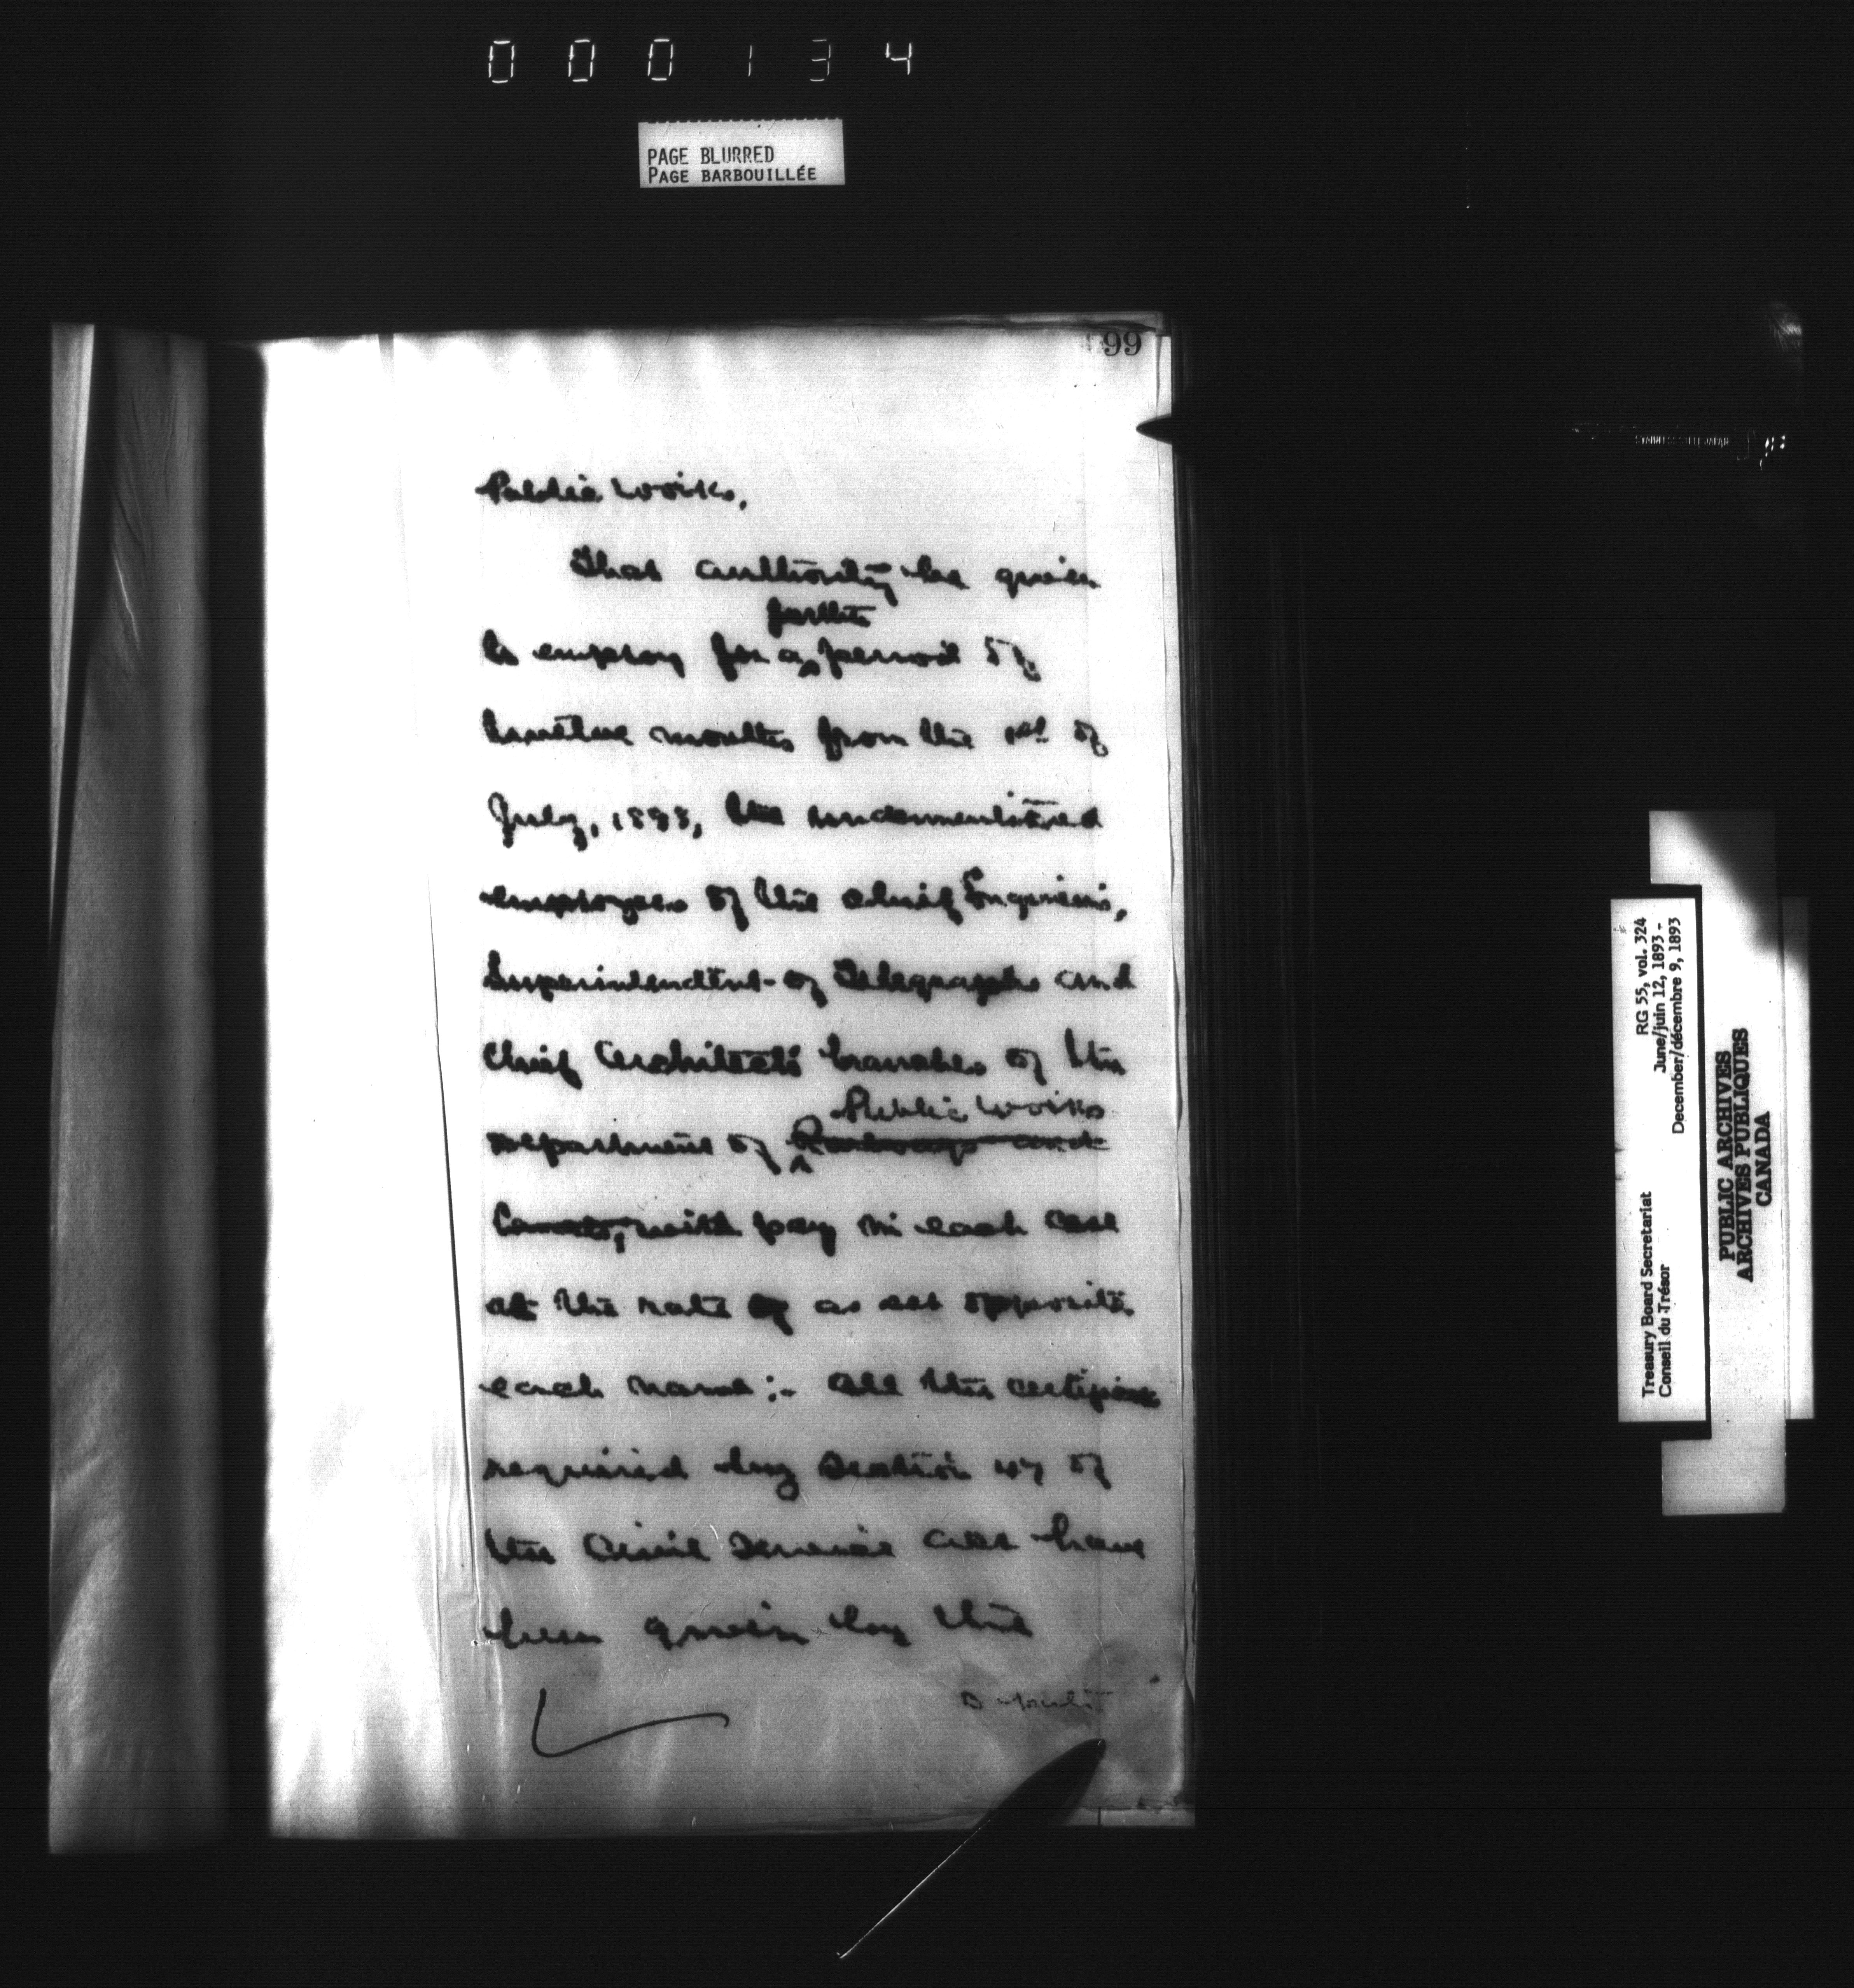 000134
PAGE BLURRED
PAGE BARBOUILLÉE
99
Public Works,
That authority be given
further
to employ for a period of
twelve months from the 1st of
July, 1893, the undermentioned
employees of the Chief Engineer's,
Superintendent of Telegraphs and
Chief Architect's branches of the
Public Works
Department of Railways and
Canals, with pay in each case
at the rate of as set opposite
each name:- All the certificates
required by Section 47 of
the Civil Service Act have
been given by the
RG 55, vol. 324
June/juin 12, 1893 -
December/décembre 9, 1893
Treasury Board Secretariat
Conseil du Trésor
PUBLIC ARCHIVES
ARCHIVES PUBLIQUES
CANADA